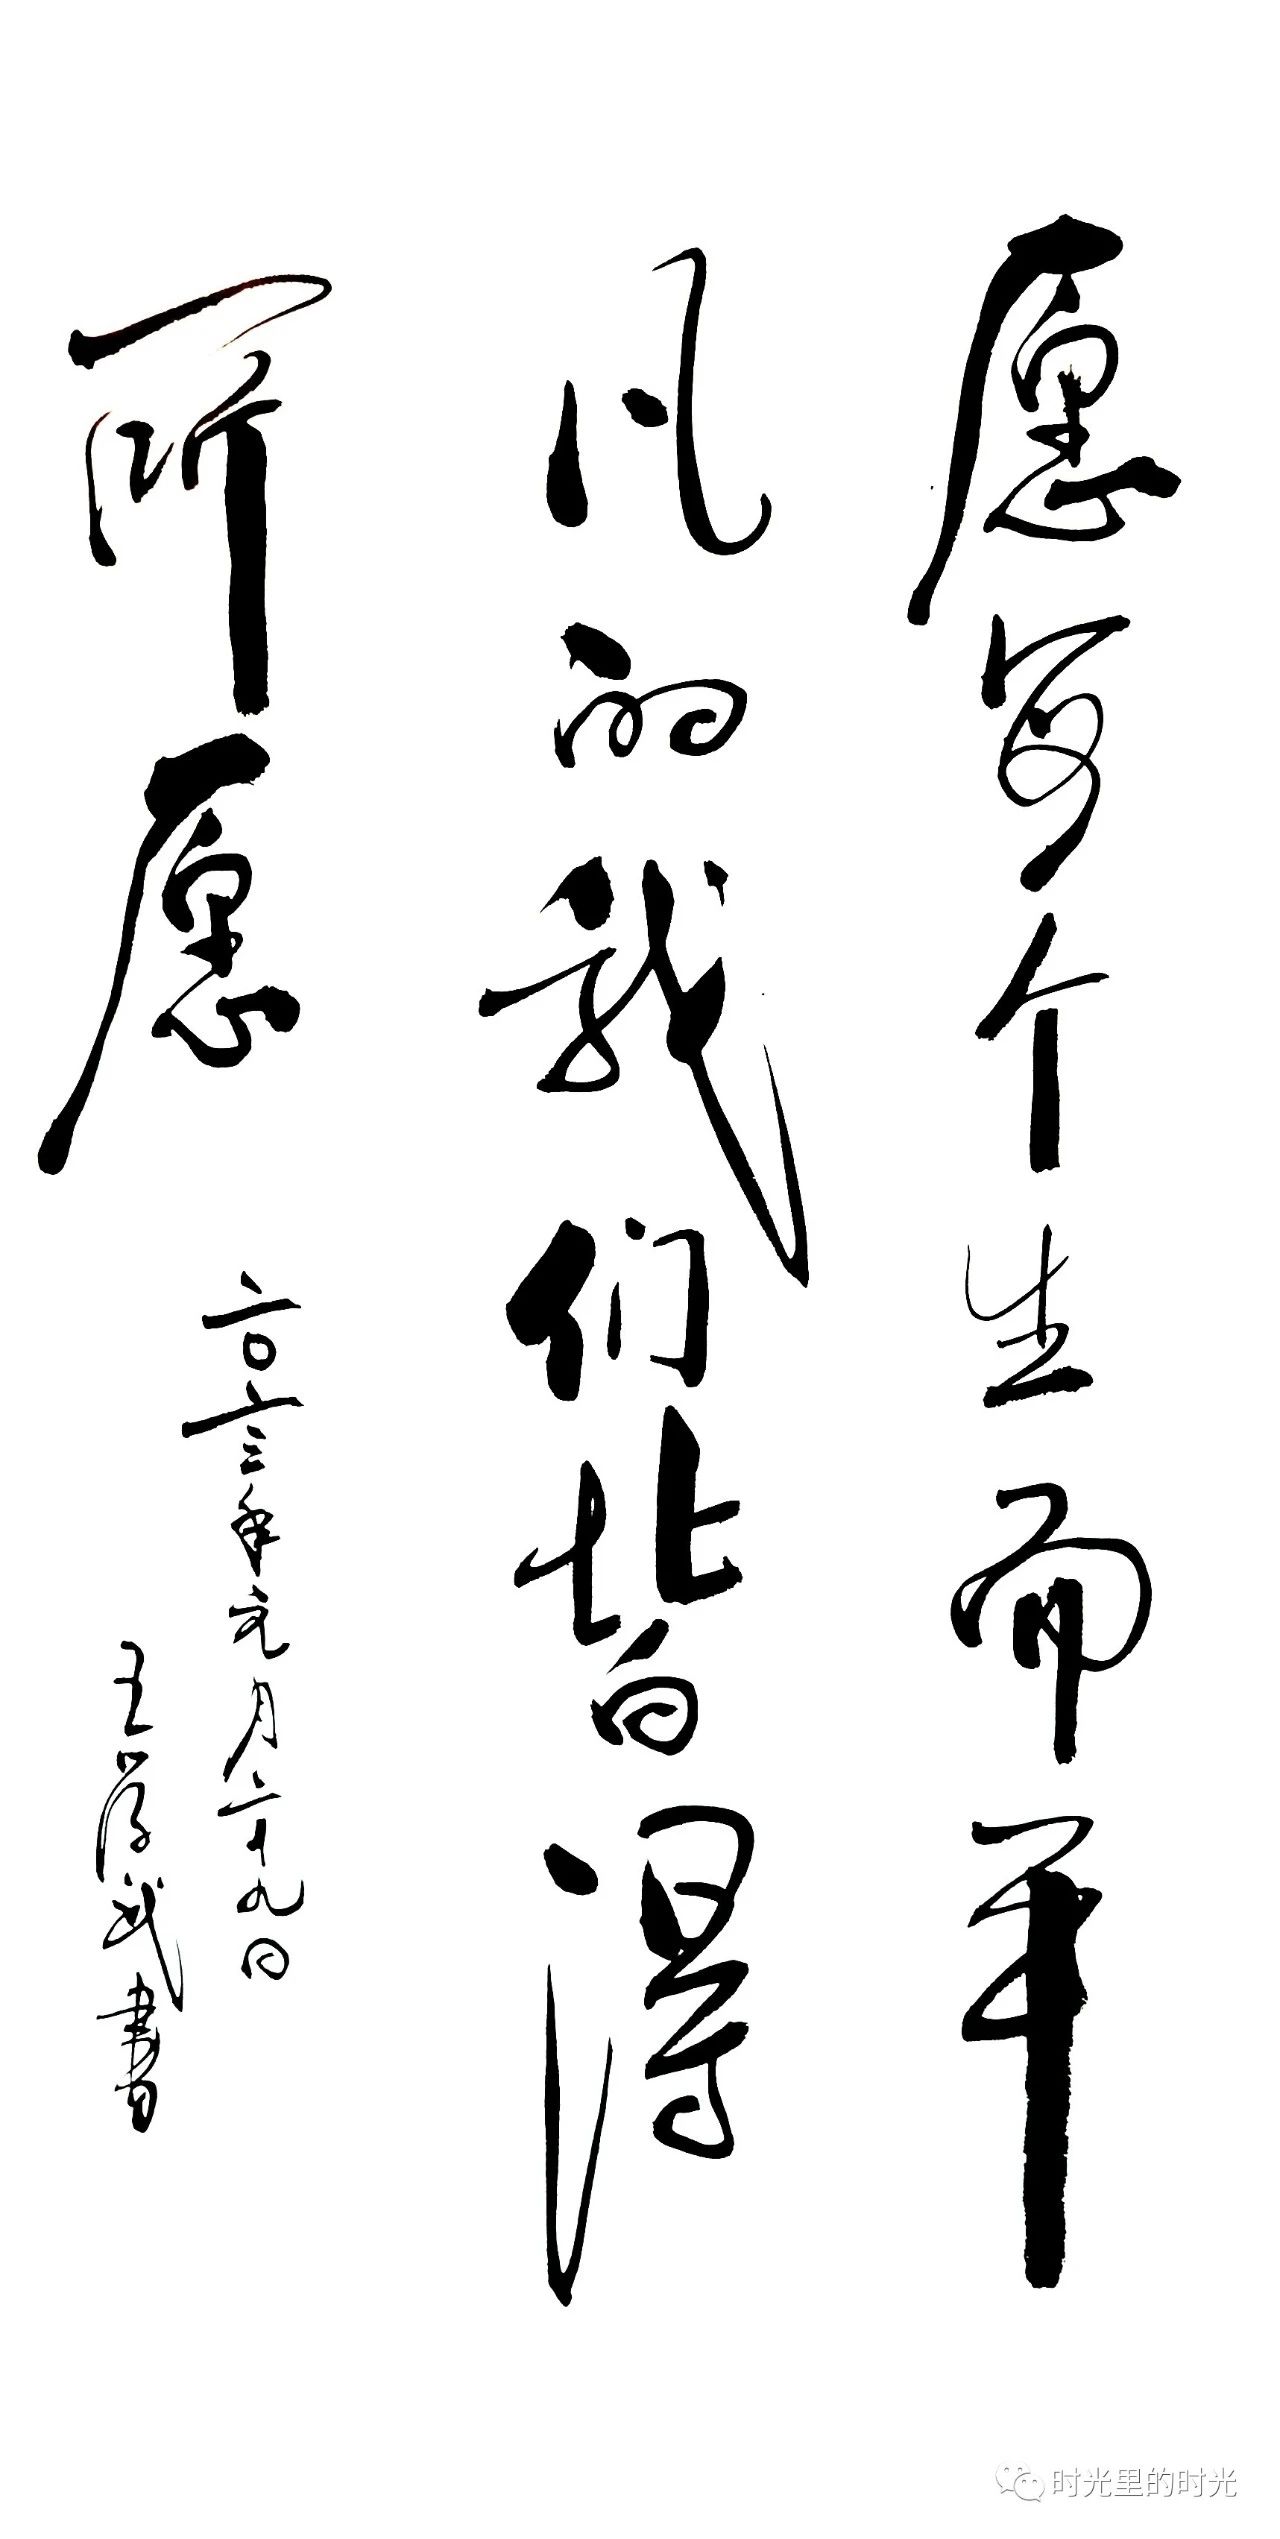 愿每个生而平
凡的我们皆得
所愿
二〇二三年元月二十九日
王武書
时光里的时光